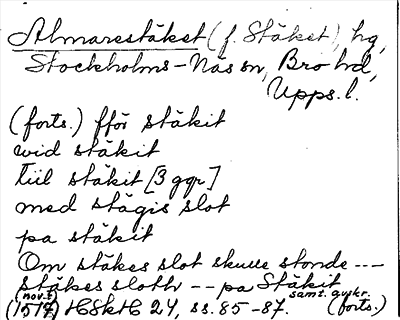 Almarestäket (f. Stäket), hg,
Stockholms-Näs sn, Bro hd,
Upps. l.
(forts.) fför stäkit
wid stäkit
tiil stäkit [3 ggr]
med stägis slot
pa stäkit
Om stäkes slot skulle stonde ---
stäkes sloth -- pa Stäkit
(nov.?) samt. avskr.
(1517) HSkH 24, ss. 85-87. (forts.)